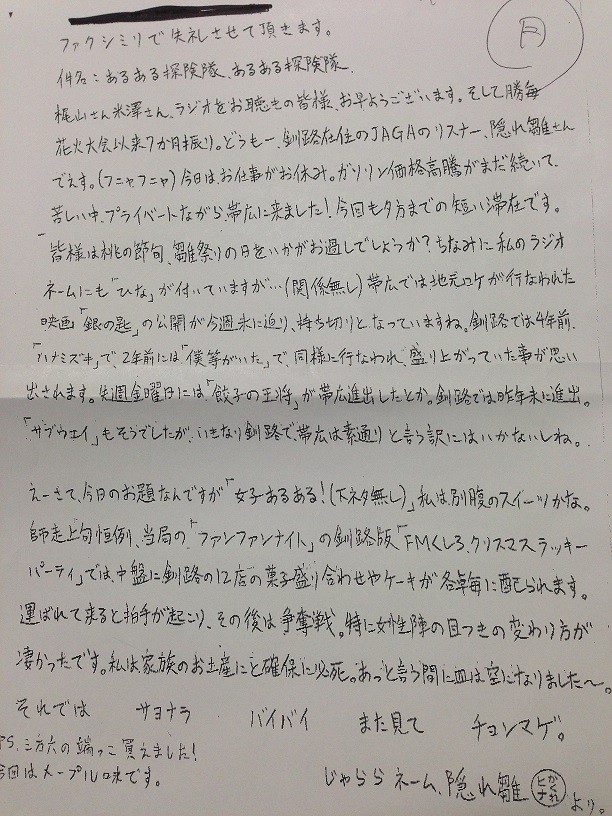 月
ファクシミリで失礼させて頂きます。
件名:あるある探険隊、あるある探険隊、
梶山さん米澤さん、ラジオをお聴きの皆様、お早ようございます。そして勝毎
花火大会以来7か月振り。どうもー、釧路在住のJAGAのリスナー、隠れ雛さん
でえす。(フニャフニャ)今日はお仕事がお休み。ガソリン価格高騰がまだ続いて、
苦しい中、プライベートながら、帯広に来ました!今回も夕方までの短い滞在です。
皆様は桃の節句、雛祭りの日をいかがお過しでしょうか?ちなみに私のラジオ
ネームにも「ひな」が付いていますが…(関係無し)帯広では地元ロケが行なわれた
映画「銀の匙」の公開が今週末に迫り、持ち切りとなっていますね。釧路では4年前、
「ハナミズキ」で、2年前には「僕等がいた」で、同様に行なわれ、盛り上がっていた事が思い
出されます。先週金曜日には「餃子の王将」が帯広進出したとか。釧路では昨年末に進出。
「サブウェイ」もそうでしたが、いきなり釧路で、帯広は素通りと言う訳にはいかないしね。
えーさて、今日のお題なんですが「女子あるある!(下ネタ無し)」私は別腹のスイーツかな。
師走上旬恒例、当局の「ファンファンナイト」の釧路版「FMくしろ、クリスマスラッキー
パーティ」では、中盤に釧路の12店の菓子盛り合わせやケーキが各卓毎に配られます。
運ばれて来ると拍手が起こり、その後は争奪戦。特に女性陣の目つきの変わり方が
凄かったです。私は家族のお土産にと確保に必死。あっと言う間に皿は空になりました〜。
それでは サヨナラ バイバイ また見て チョンマゲ。
PS、三方六の端っこ買えました!
今回はメープル味です。
じゃららネーム、隠れ雛 かくれヒナ より。